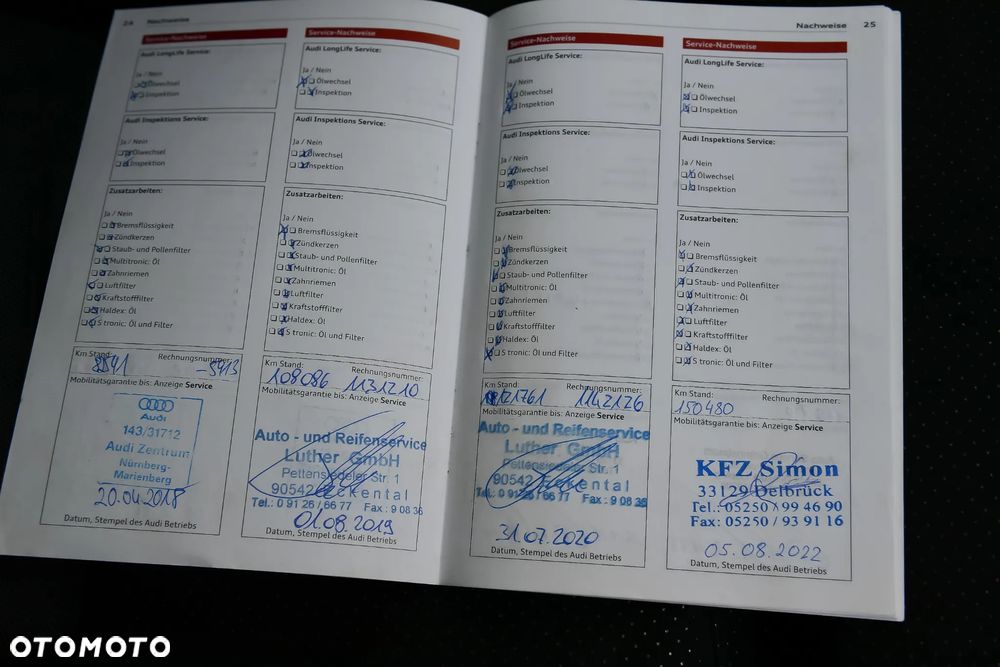 24 Nachweise
Service-Nachweise
Audi LongLife Service:
Ja / Nein
Ölwechsel
Inspektion
Audi Inspektions Service:
Ja / Nein
Ölwechsel
Inspektion
Zusatzarbeiten:
Ja / Nein
Bremsflüssigkeit
Zündkerzen
Staub- und Pollenfilter
Multitronic: Öl
Zahnriemen
Luftfilter
Kraftstofffilter
Haldex: Öl
S tronic: Öl und Filter
Km Stand: Rechnungsnummer:
Mobilitätsgarantie bis: Anzeige Service
Audi
143/31712
Audi Zentrum
Nürnberg-
Marienberg
20.04.2018
Datum, Stempel des Audi Betriebs
Service-Nachweise
Audi LongLife Service:
Ja / Nein
Ölwechsel
Inspektion
Audi Inspektions Service:
Ja / Nein
Ölwechsel
Inspektion
Zusatzarbeiten:
Ja / Nein
Bremsflüssigkeit
Zündkerzen
Staub- und Pollenfilter
Multitronic: Öl
Zahnriemen
Luftfilter
Kraftstofffilter
Haldex: Öl
S tronic: Öl und Filter
Km Stand: Rechnungsnummer:
108086 1131210
Mobilitätsgarantie bis: Anzeige Service
Auto - und Reifenservice
Luther GmbH
Pettensiedeler Str. 1
90542 Eckental
Tel.: 0 91 26 / 66 77 Fax : 9 08 36
01.08.2019
Datum, Stempel des Audi Betriebs
Nachweise 25
Service-Nachweise
Audi LongLife Service:
Ja / Nein
Ölwechsel
Inspektion
Audi Inspektions Service:
Ja / Nein
Ölwechsel
Inspektion
Zusatzarbeiten:
Ja / Nein
Bremsflüssigkeit
Zündkerzen
Staub- und Pollenfilter
Multitronic: Öl
Zahnriemen
Luftfilter
Kraftstofffilter
Haldex: Öl
S tronic: Öl und Filter
Km Stand: Rechnungsnummer:
121761 1142126
Mobilitätsgarantie bis: Anzeige Service
Auto - und Reifenservice
Luther GmbH
Pettensiedeler Str. 1
90542 Eckental
Tel.: 0 91 26 / 66 77 Fax : 9 08 36
31.07.2020
Datum, Stempel des Audi Betriebs
Service-Nachweise
Audi LongLife Service:
Ja / Nein
Ölwechsel
Inspektion
Audi Inspektions Service:
Ja / Nein
Ölwechsel
Inspektion
Zusatzarbeiten:
Ja / Nein
Bremsflüssigkeit
Zündkerzen
Staub- und Pollenfilter
Multitronic: Öl
Zahnriemen
Luftfilter
Kraftstofffilter
Haldex: Öl
S tronic: Öl und Filter
Km Stand: Rechnungsnummer:
150480
Mobilitätsgarantie bis: Anzeige Service
KFZ Simon
33129 Delbrück
Tel.: 05250 / 99 46 90
Fax: 05250 / 93 91 16
05.08.2022
Datum, Stempel des Audi Betriebs
OTOMOTO